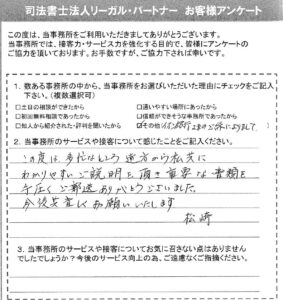 司法書士法人リーガル・パートナー お客様アンケート
この度は、当事務所をご利用いただきましてありがとうございます。
当事務所では、接客力・サービス力を強化する目的で、皆様にアンケートの
ご協力を頂いております。お手数ですが、ご協力下されば幸いです。
1. 数ある事務所の中から、当事務所をお選びいただいた理由にチェックをご記入
下さい。(複数選択可)
□土日の相談ができたから □通いやすい場所にあったから
□初回無料相談であったから □信頼ができそうな事務所であったから
□知人から紹介された・評判を聞いたから ☑その他(
2. 当事務所のサービスや接客について感じたことをご記入ください。
この度は、多忙なところ 遠方から私共に
わかりやすいご説明を頂き 重要な書類を
手広くご郵送ありがとうございました。
今後共宜しくお願いいたします
松崎
3. 当事務所のサービスや接客についてお気に召さない点はありません
でしたでしょうか?今後のサービス向上の為、ご遠慮なくご指摘ください。